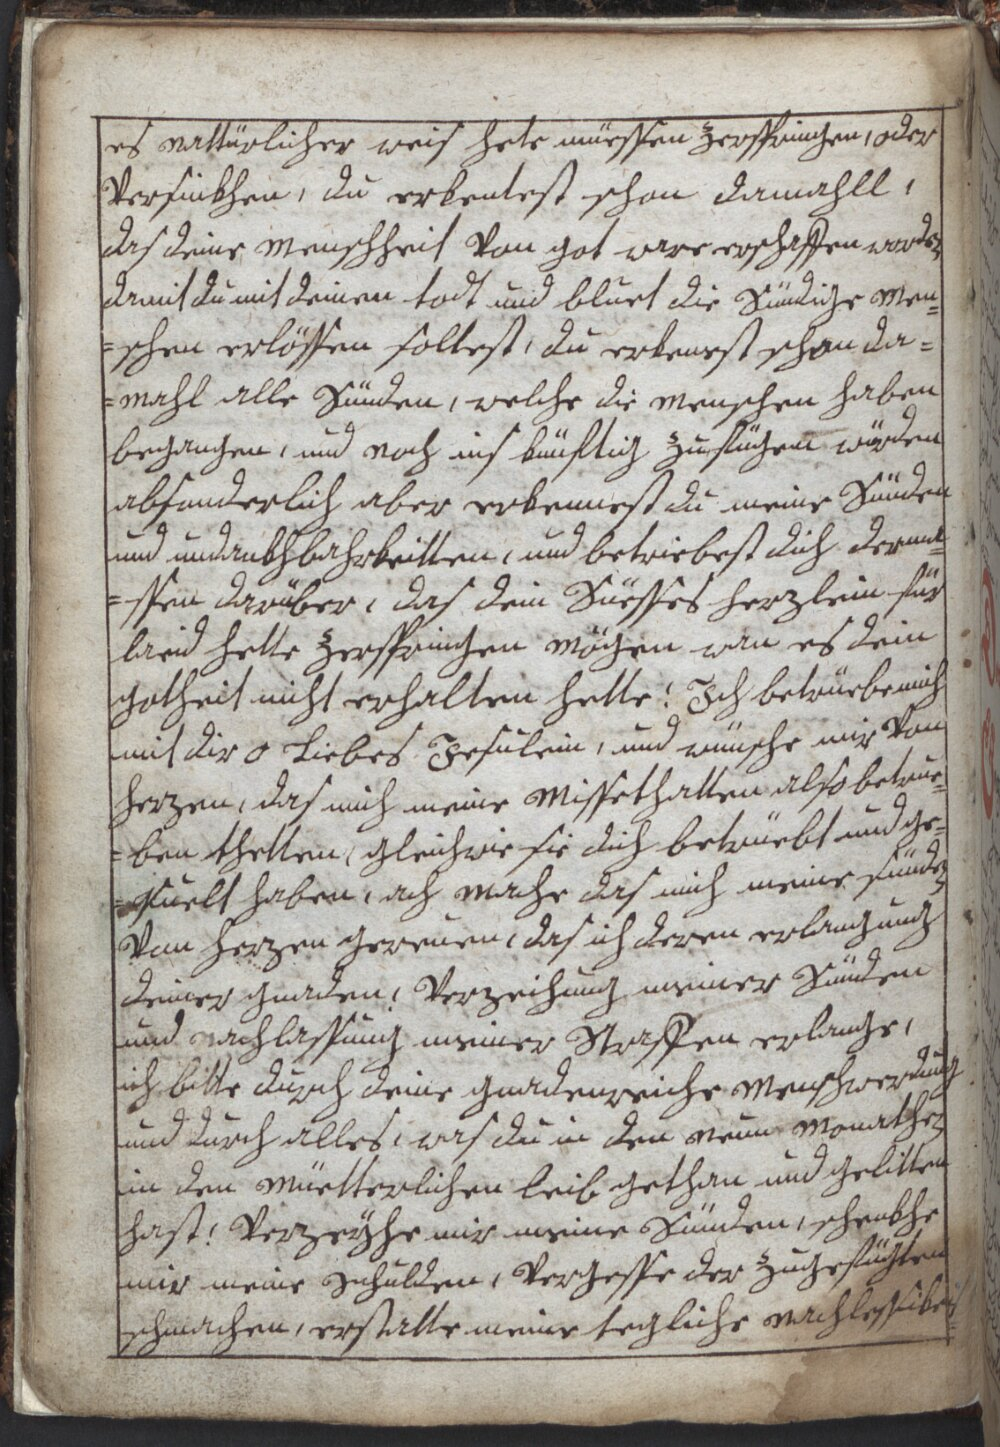 es nattürlicher weis hete müessen zerspringen, oder
Versinkhen, du erkentest schon damahll,
das deine menschheit Von got ware erschaffen worden
damit du mit deinen todt und bluet die Sündige men=
=schen erlössen soltest, du erkenest schon da=
=mahl alle Sünden, welche die menschen haben
begangen, und noch ins künftig zufügen würden
absonderlich aber erkennest du meine Sünden
und undankhbahrkeitten, und betriebest dich derma=
=ssen darüber, das dein Süesses herzlein für
laid hette zerspringen mögen wan es dein
gotheit nicht erhalten hette! Ich betrüebe mich
mit dir o Liebes Jesulein, und wünsche mir Von
herzen, das mich meine Missethatten also betrüe=
=ben thetten, gleichwie sie dich betrüebt und ge=
=quelt haben, ach mache das mich meine sünden
Von herzen gereuen, das ich deren erlangung
deiner gnaden, Verzeihung meiner Sünden
und nachlassung meiner Straffen erlange,
ich bitte durch deine gnadenreiche Menschwerdung
und durch alles, was du in den neun Monathen
in den Müetterlichen leib gethan und gelitten
hast! Verzeÿhe mir meine Sünden, schenkhe
mir meine Schulden, Vergesse der zugefügten
schmachen, erstatte meine tegliche nachlessikei=